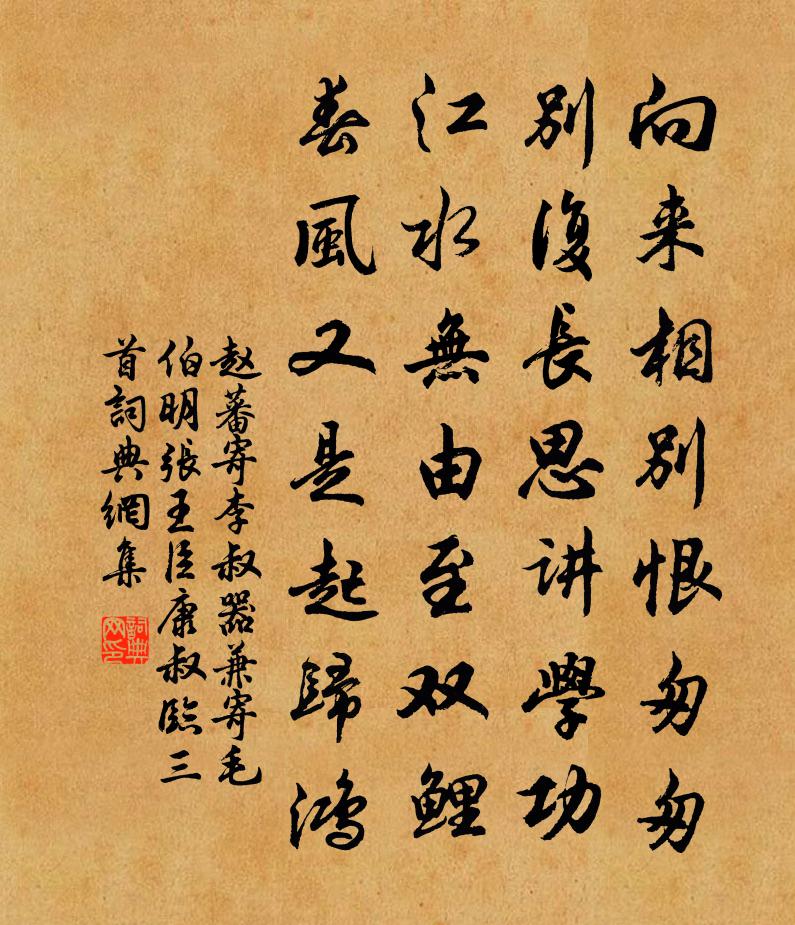 向来相别恨匆匆
别復長思讲學功
江水無由至双鯉
春風又是起歸鸿
赵蕃寄李叔器兼寄毛
伯明張王臣康叔臨三
首詞典網集
詞典网印